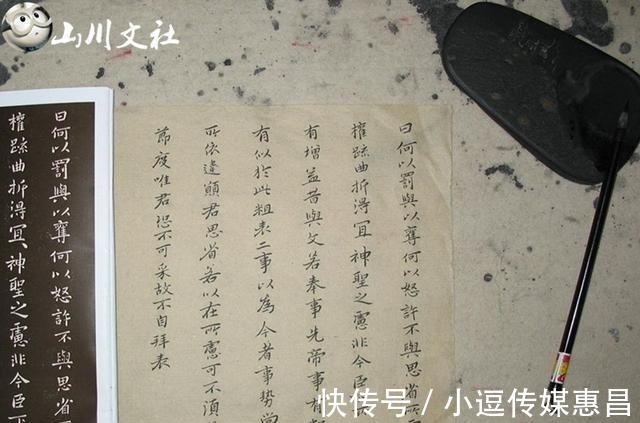 山川文社
曰何以罰與以奪何以怒許不與思省
權踈曲折得宜神聖之慮非今臣
有增益昔與文若奉事先帝事有
有似於此粗表二事以為今者事勢尚
所依違願君思省若以在所慮可不須
節度唯君恐不可采故不自拜表
曰何以罰與以奪何以怒許不與思省
權踈曲折得宜神聖之慮非今臣下
快传号/小逗传媒惠昌